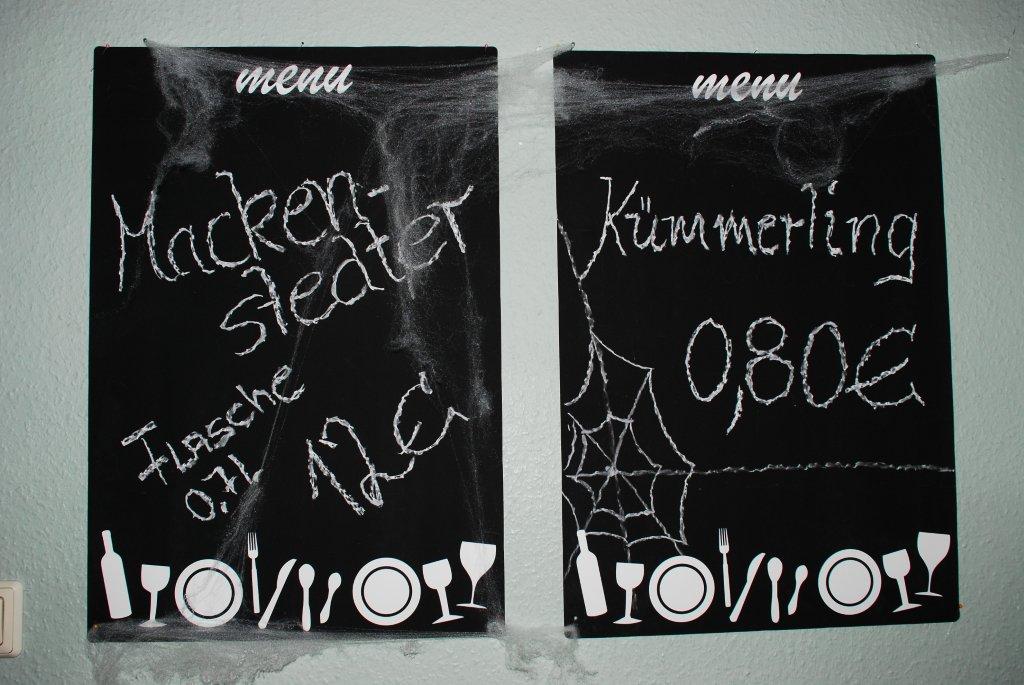 menu
Macken-
stedter
Flasche
0,7l
12€
menu
Kümmerling
0,80€